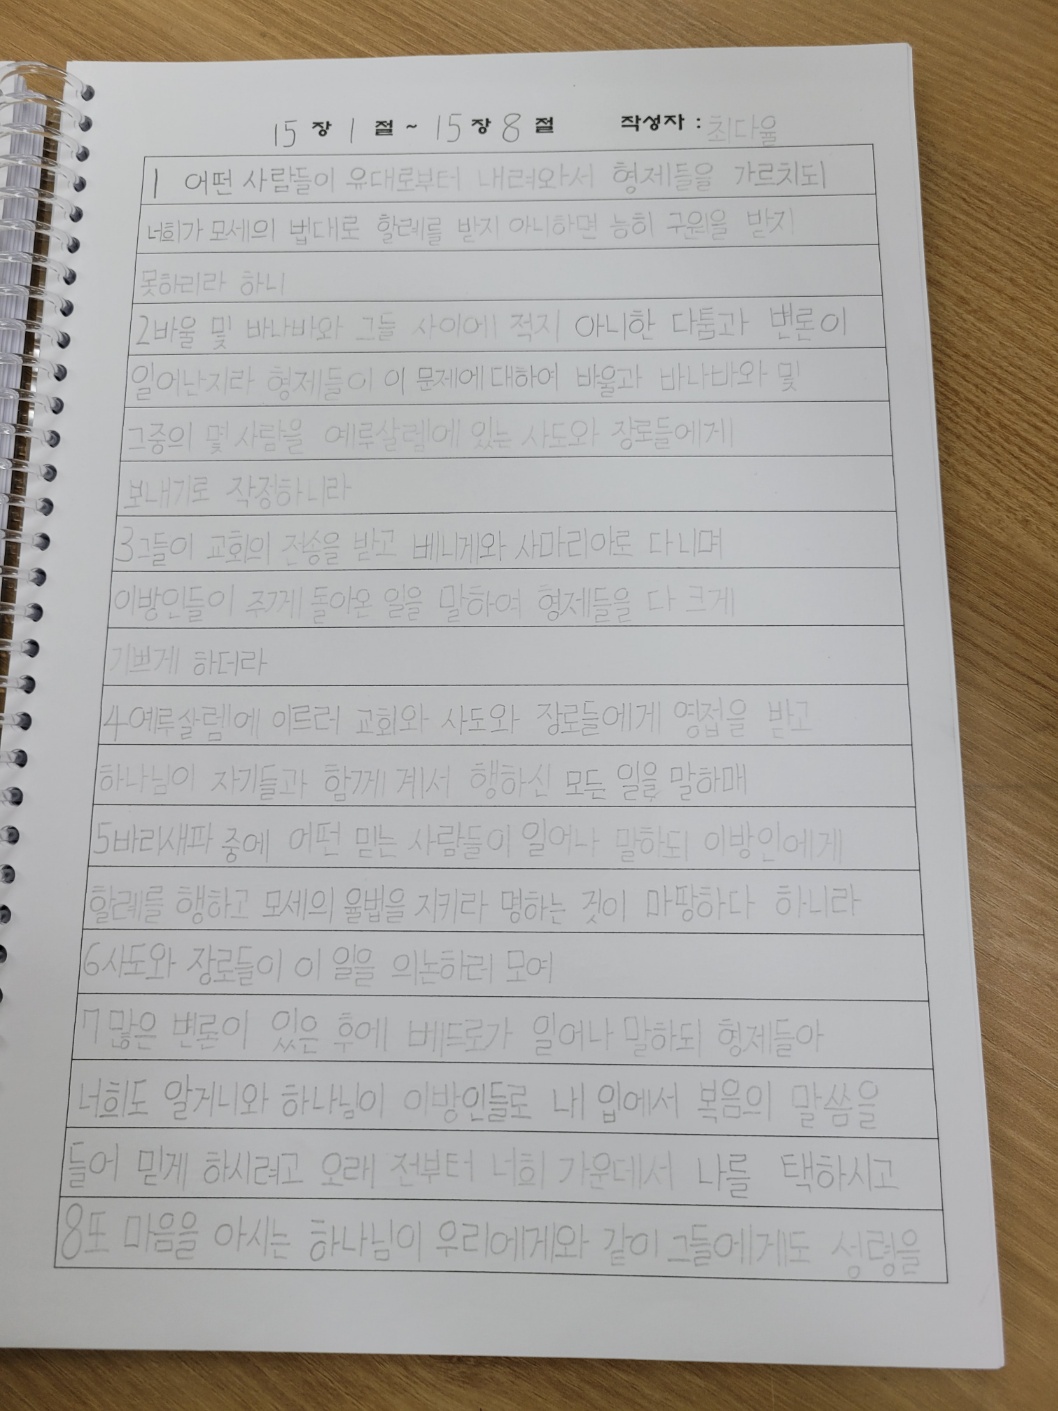 15 장 1 절 ~ 15 장 8 절 작성자 : 최다율
1 어떤 사람들이 유대로부터 내려와서 형제들을 가르치되
너희가 모세의 법대로 할례를 받지 아니하면 능히 구원을 받지
못하리라 하니
2바울 및 바나바와 그들 사이에 적지 아니한 다툼과 변론이
일어난지라 형제들이 이 문제에 대하여 바울과 바나바와 및
그중의 몇 사람을 예루살렘에 있는 사도와 장로들에게
보내기로 작정하니라
3그들이 교회의 전송을 받고 베니게와 사마리아로 다니며
이방인들이 주께 돌아온 일을 말하여 형제들을 다 크게
기쁘게 하더라
4예루살렘에 이르러 교회와 사도와 장로들에게 영접을 받고
하나님이 자기들과 함께 계셔 행하신 모든 일을 말하매
5바리새파 중에 어떤 믿는 사람들이 일어나 말하되 이방인에게
할례를 행하고 모세의 율법을 지키라 명하는 것이 마땅하다 하니라
6사도와 장로들이 이 일을 의논하러 모여
7많은 변론이 있은 후에 베드로가 일어나 말하되 형제들아
너희도 알거니와 하나님이 이방인들로 내 입에서 복음의 말씀을
들어 믿게 하시려고 오래 전부터 너희 가운데서 나를 택하시고
8또 마음을 아시는 하나님이 우리에게와 같이 그들에게도 성령을